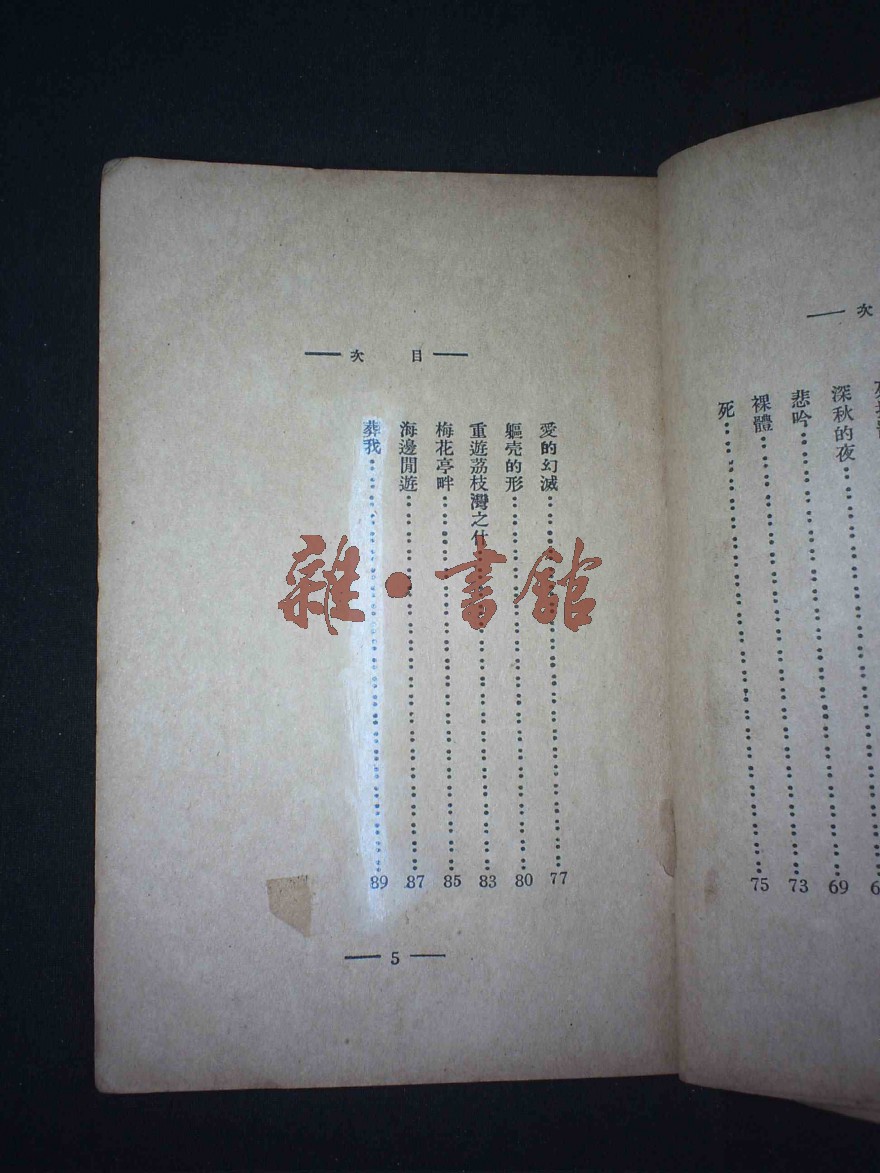 次
深秋的夜
悲吟 69
裸體 73
死 75
目 次
愛的幻滅 77
軀壳的形 80
重遊荔枝灣之什 83
梅花亭畔 85
海邊閒遊 87
葬我 89
5
雜·書館